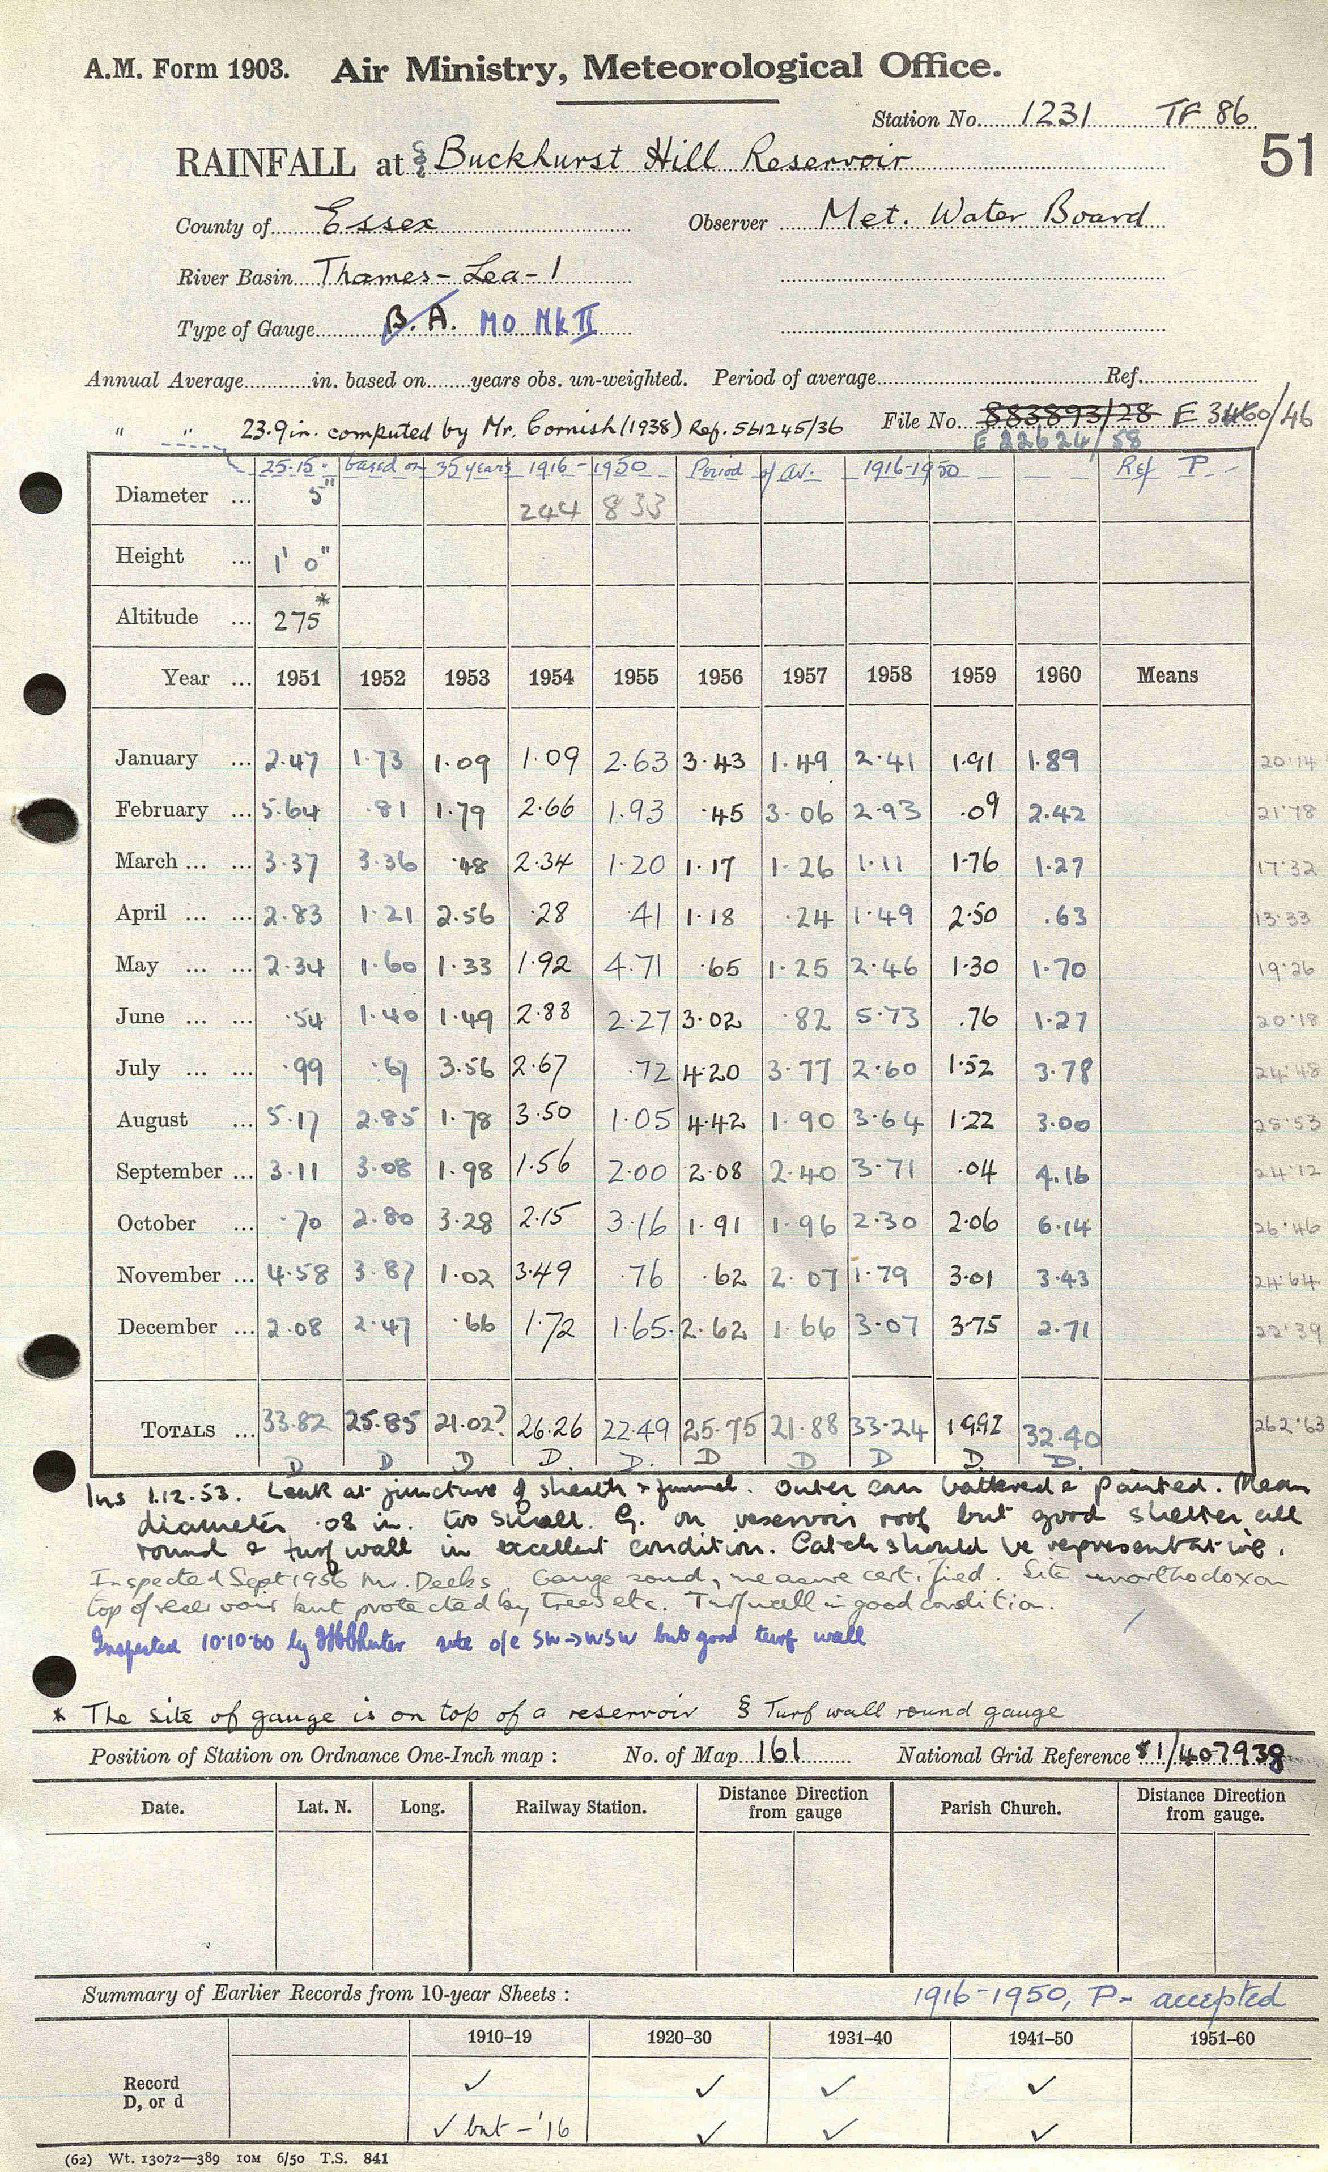 A.M. Form 1903. Air Ministry, Meteorological Office.
Station No. 1231 TF 86
51
RAINFALL at § Buckhurst Hill Reservoir
County of Essex Observer Met. Water Board
River Basin Thames - Lea - 1
Type of Gauge B.A. MO Mk II
Annual Average in. based on years obs. un-weighted. Period of average Ref.
" " 23.9 in. computed by Mr. Cornish (1938) Ref. 561245/36 File No. 883893/28 E 3460/46
E 22624/58
25.15. based on 35 years 1916-1950 Period of av. 1916-1950 Ref P -
Diameter ... 5" 244 833
Height ... 1' 0"
Altitude ... 275*
Year ... 1951 1952 1953 1954 1955 1956 1957 1958 1959 1960 Means
January ... 2.47 1.73 1.09 1.09 2.63 3.43 1.49 2.41 1.91 1.89 20.14
February ... 5.64 .81 1.79 2.66 1.93 .45 3.06 2.93 .09 2.42 21.78
March ... ... 3.37 3.36 .48 2.34 1.20 1.17 1.26 1.11 1.76 1.27 17.32
April ... ... 2.83 1.21 2.56 .28 .41 1.18 .24 1.49 2.50 .63 13.33
May ... ... 2.34 1.60 1.33 1.92 4.71 .65 1.25 2.46 1.30 1.70 19.26
June ... ... .54 1.40 1.49 2.88 2.27 3.02 .82 5.73 .76 1.27 20.18
July ... ... .99 .67 3.56 2.67 .72 4.20 3.77 2.60 1.52 3.78 24.48
August ... 5.17 2.85 1.78 3.50 1.05 4.42 1.90 3.64 1.22 3.00 28.53
September ... 3.11 3.08 1.98 1.56 2.00 2.08 2.40 3.71 .04 4.16 24.12
October ... .70 2.80 3.28 2.15 3.16 1.91 1.96 2.30 2.06 6.14 26.46
November ... 4.58 3.87 1.02 3.49 .76 .62 2.07 1.79 3.01 3.43 24.64
December ... 2.08 2.47 .66 1.72 1.65 2.62 1.66 3.07 3.75 2.71 22.39
TOTALS ... 33.82 25.85 21.02? 26.26 22.49 25.75 21.88 33.24 19.92 32.40 262.63
D D D D. D. D D D D. D.
Ins 1.12.53. Leak at juncture of sheath & funnel. Outer can battered & painted. Mean
diameter .08 in. too small. G. on reservoir roof but good shelter all
round & turf wall in excellent condition. Catch should be representative.
Inspected Sept 1956 Mr. Deeks Gauge sound, measure certified. Site unorthodox on
top of reservoir but protected by trees etc. Turf wall in good condition.
Inspected 10.10.60 by site o/e SW→WSW but good turf wall
* The site of gauge is on top of a reservoir § Turf wall round gauge
Position of Station on Ordnance One-Inch map : No. of Map 161 National Grid Reference 51/407938
Date. Lat. N. Long. Railway Station. Distance Direction from gauge Parish Church. Distance Direction from gauge.
Summary of Earlier Records from 10-year Sheets : 1916-1950, P - accepted
1910–19 1920–30 1931–40 1941–50 1951–60
Record ✓ ✓ ✓ ✓
D, or d ✓ but - '16 ✓ ✓ ✓
(62) Wt. 13072—389 10M 6/50 T.S. 841